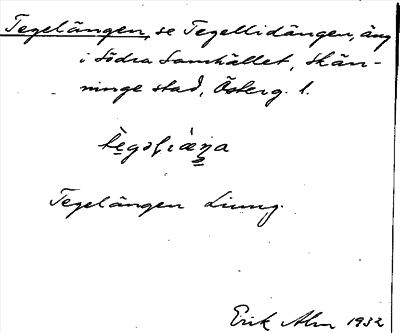 Tegelängen, se Tegellidängen, äng
i Södra Samhället, Skän-
ninge stad, Österg. l.
Tegelängen Liung.
Erik Alm 1932